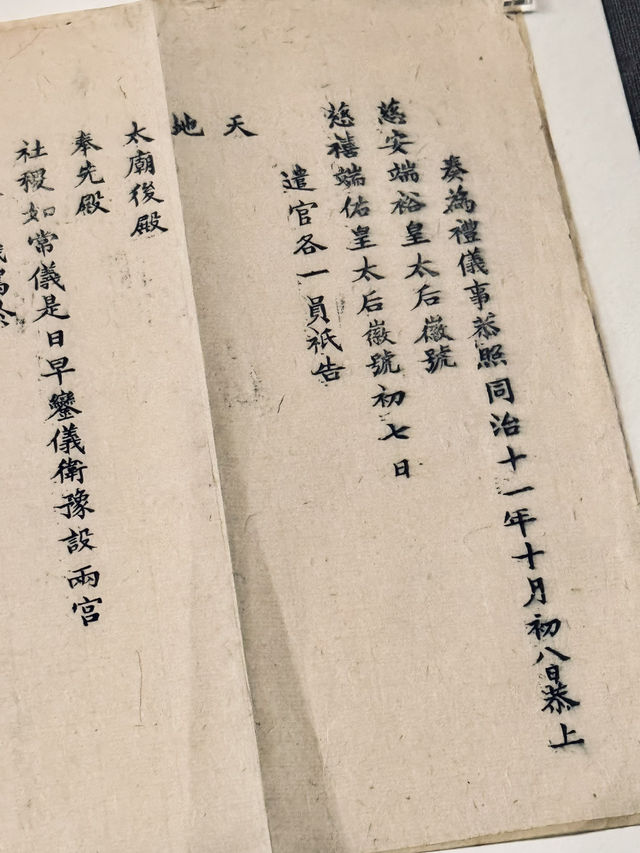 奏為禮儀事恭照同治十一年十月初八日恭上
慈安端裕皇太后徽號
慈禧端佑皇太后徽號初七日
遣官各一員祇告
天
地
太廟後殿
奉先殿
社稷如常儀是日早鑾儀衛豫設兩宮